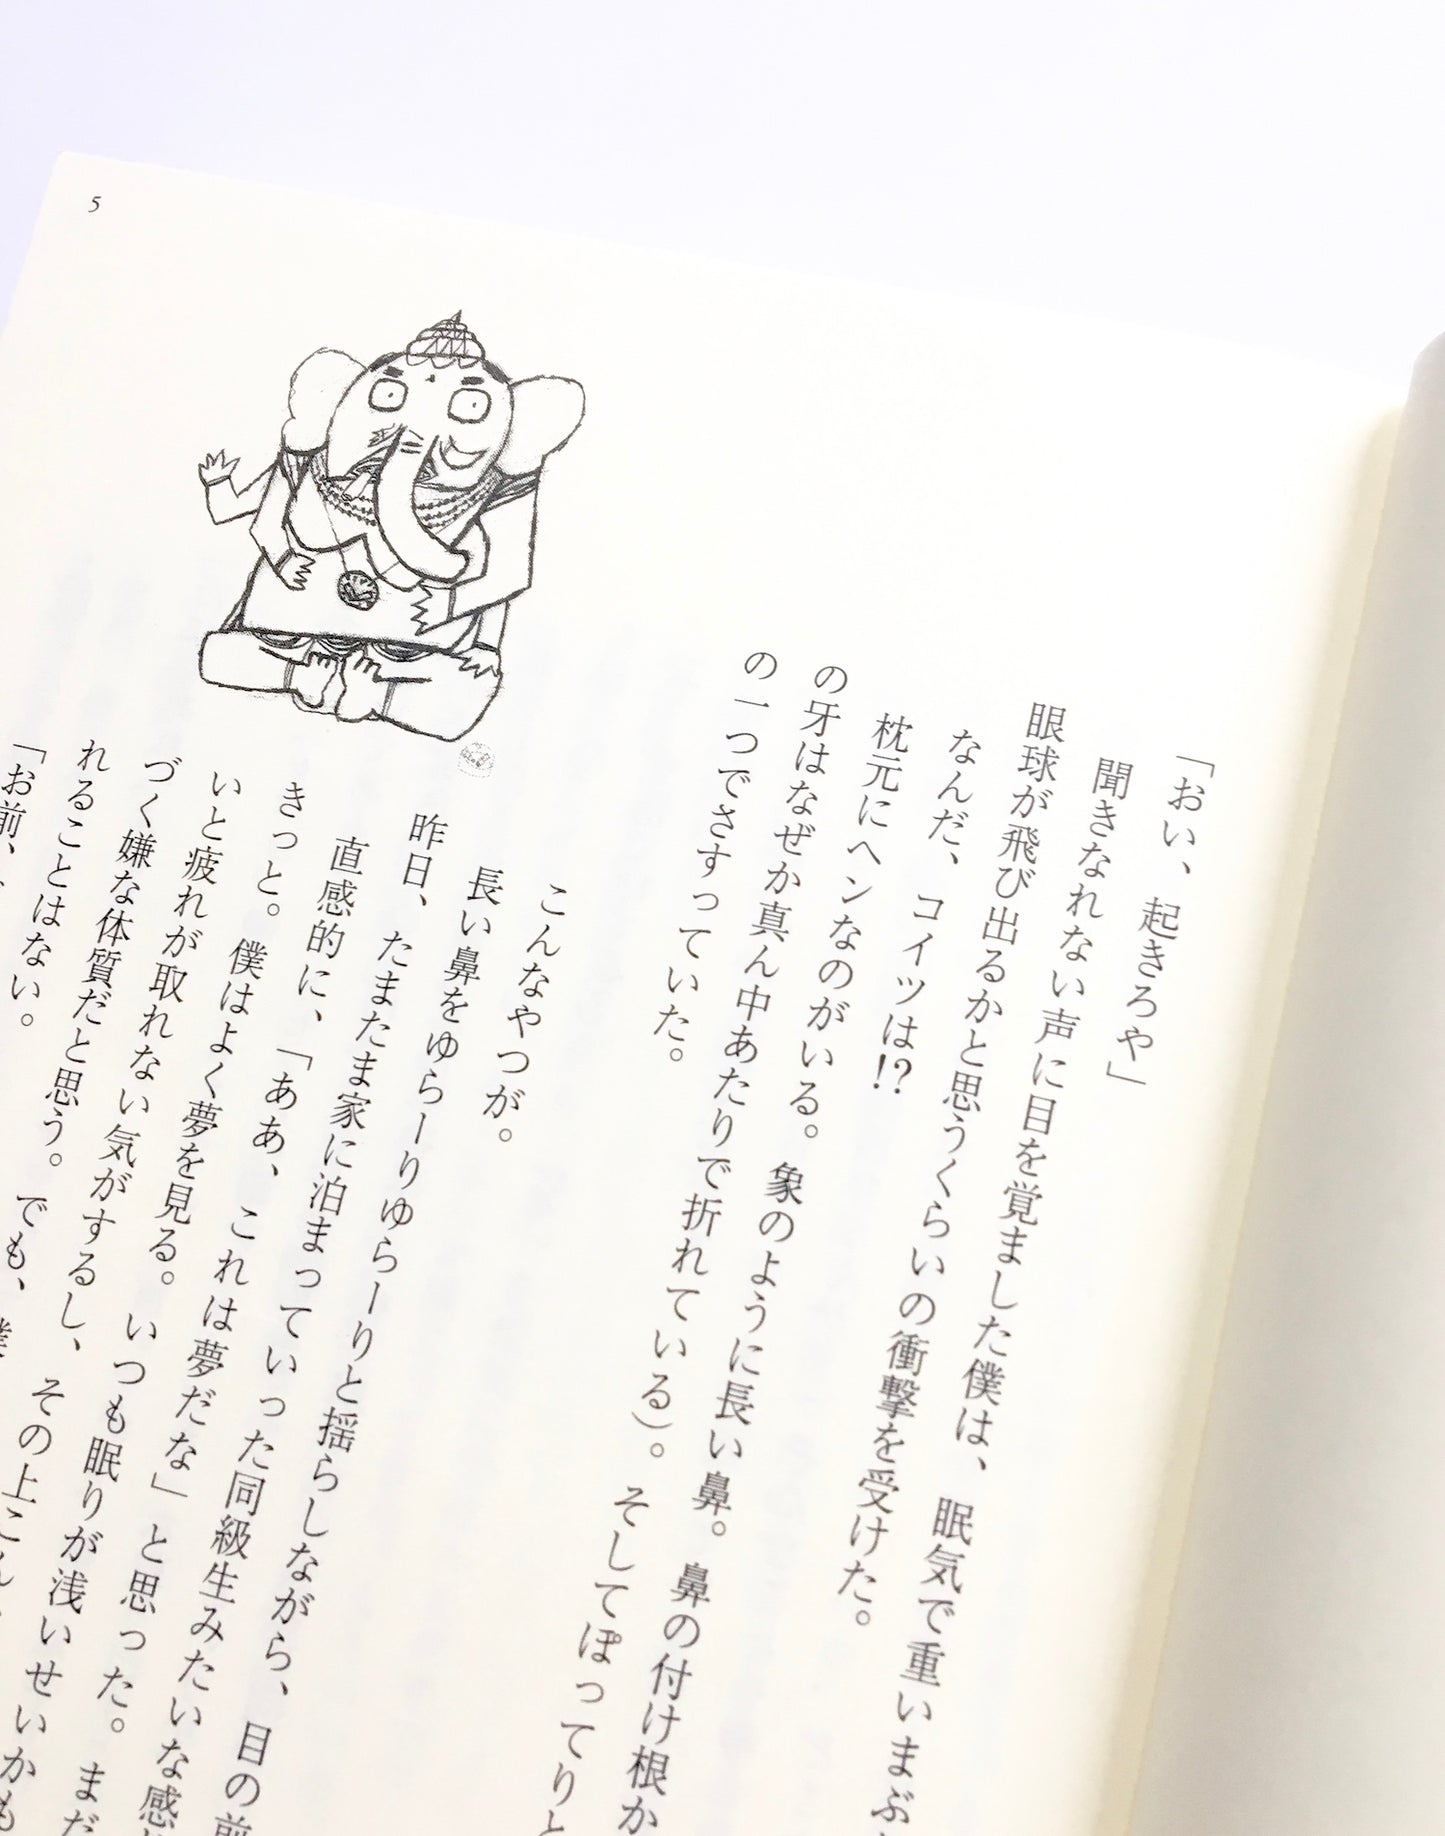 5
「おい、起きろや」
聞きなれない声に目を覚ました僕は、眠気で重いまぶ
眼球が飛び出るかと思うくらいの衝撃を受けた。
なんだ、コイツは!?
枕元にヘンなのがいる。象のように長い鼻。鼻の付け根か
の牙はなぜか真ん中あたりで折れている)。そしてぽってりと
の一つでさすっていた。
こんなやつが。
長い鼻をゆらーりゆらーりと揺らしながら、目の前
昨日、たまたま家に泊まっていった同級生みたいな感
直感的に、「ああ、これは夢だな」と思った。まだ
きっと。僕はよく夢を見る。いつも眠りが浅いせいかも
いと疲れが取れない気がするし、その上こん
づく嫌な体質だと思う。でも、
れることはない。
「お前、